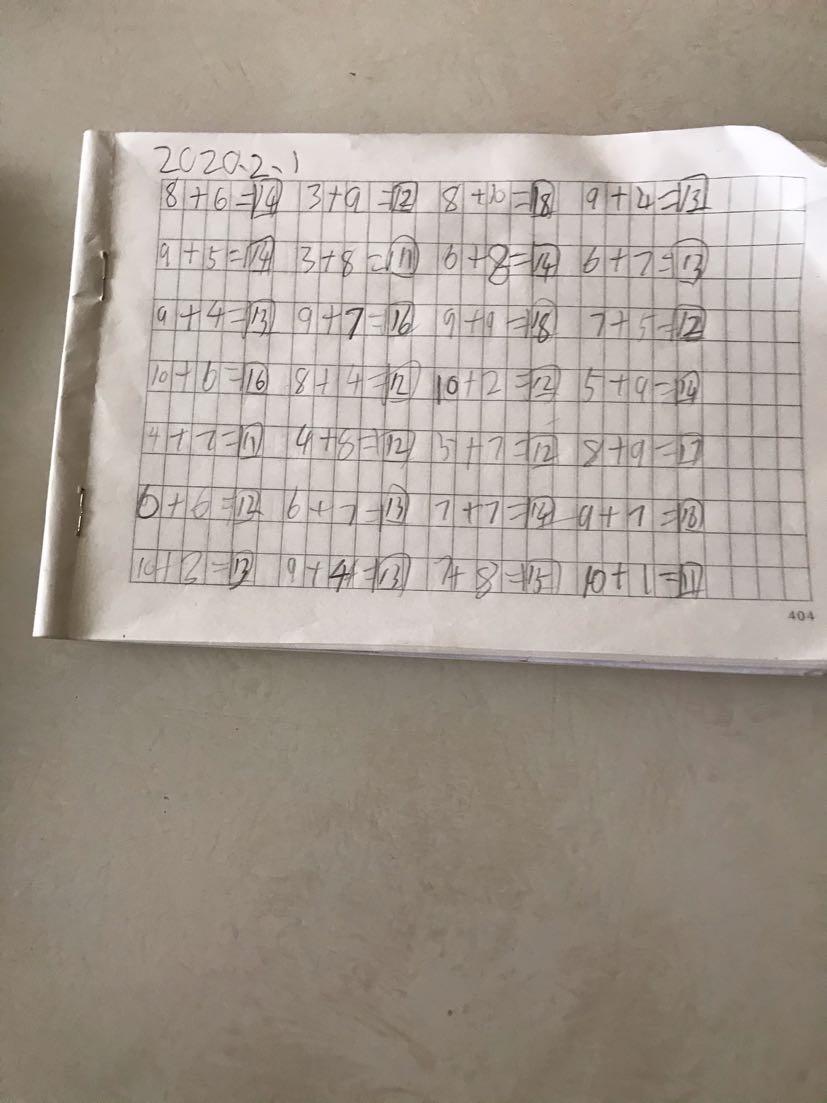 2020.2.1
8+6=14 3+9=12 8+10=18 9+4=13
9+5=14 3+8=11 6+8=14 6+7=13
9+4=13 9+7=16 9+9=18 7+5=12
10+6=16 8+4=12 10+2=12 5+9=14
4+7=11 4+8=12 5+7=12 8+9=17
6+6=12 6+7=13 7+7=14 9+7=18
10+3=13 9+4=13 7+8=15 10+1=11
404